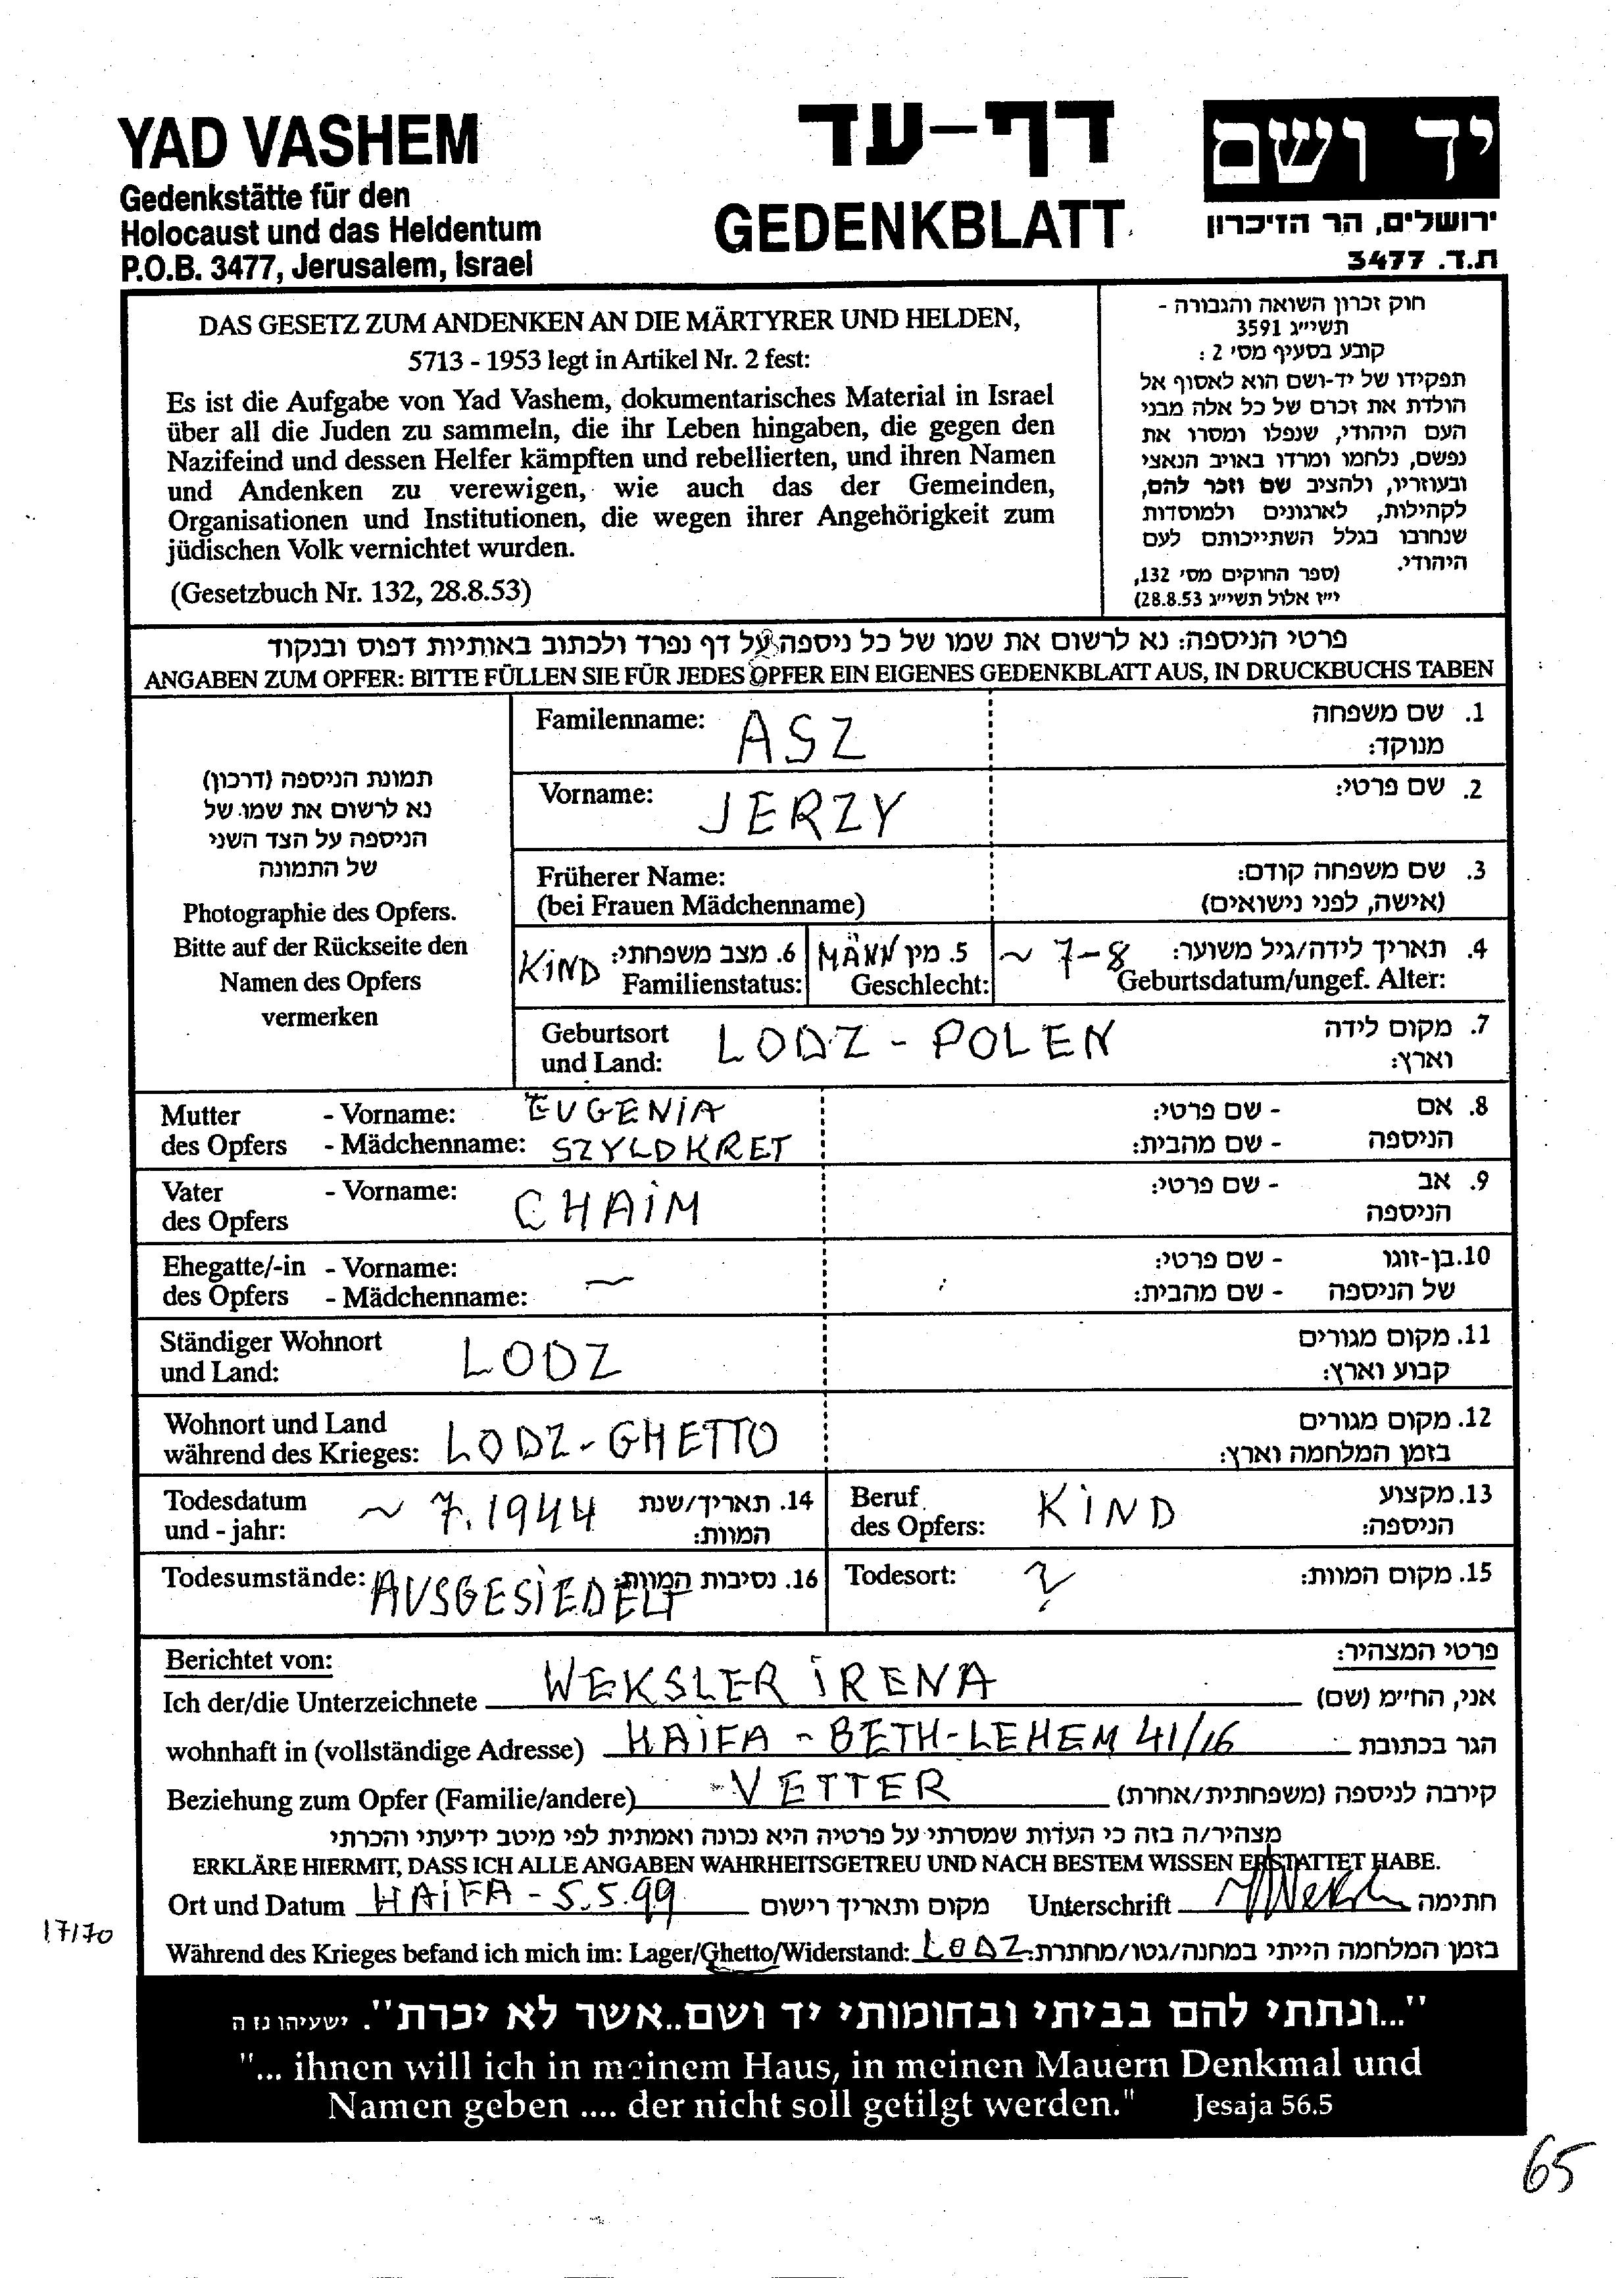 YAD VASHEM
Gedenkstätte für den
Holocaust und das Heldentum
P.O.B. 3477, Jerusalem, Israel
דף-עד
GEDENKBLATT
יד ושם
ירושלים, הר הזיכרון
ת.ד. 3477
DAS GESETZ ZUM ANDENKEN AN DIE MÄRTYRER UND HELDEN,
5713 - 1953 legt in Artikel Nr. 2 fest:
Es ist die Aufgabe von Yad Vashem, dokumentarisches Material in Israel
über all die Juden zu sammeln, die ihr Leben hingaben, die gegen den
Nazifeind und dessen Helfer kämpften und rebellierten, und ihren Namen
und Andenken zu verewigen, wie auch das der Gemeinden,
Organisationen und Institutionen, die wegen ihrer Angehörigkeit zum
jüdischen Volk vernichtet wurden.
(Gesetzbuch Nr. 132, 28.8.53)
חוק זכרון השואה והגבורה -
תשי״ג 3591
קובע בסעיף מס׳ 2 :
תפקידו של יד-ושם הוא לאסוף אל
הולדת את זכרם של כל אלה מבני
העם היהודי, שנפלו ומסרו את
נפשם, נלחמו ומרדו באויב הנאצי
ובעוזריו, ולהציב שם וזכר להם,
לקהילות, לארגונים ולמוסדות
שנחרבו בגלל השתייכותם לעם
היהודי.
(ספר החוקים מס׳ 132,
י״ז אלול תשי״ג 28.8.53)
פרטי הניספה: נא לרשום את שמו של כל ניספה על דף נפרד ולכתוב באותיות דפוס ובנקוד
ANGABEN ZUM OPFER: BITTE FÜLLEN SIE FÜR JEDES OPFER EIN EIGENES GEDENKBLATT AUS, IN DRUCKBUCHS TABEN
תמונת הניספה (דרכון)
נא לרשום את שמו של
הניספה על הצד השני
של התמונה
Photographie des Opfers.
Bitte auf der Rückseite den
Namen des Opfers
vermerken
Familenname: ASZ 1. שם משפחה
מנוקד:
Vorname: JERZY 2. שם פרטי:
Früherer Name: 3. שם משפחה קודם:
(bei Frauen Mädchenname) (אישה, לפני נישואים)
KIND 6. מצב משפחתי: MÄNN 5. מין ~ 7-8 4. תאריך לידה/גיל משוער:
Familienstatus: Geschlecht: Geburtsdatum/ungef. Alter:
Geburtsort LODZ - POLEN 7. מקום לידה
und Land: וארץ:
Mutter - Vorname: EUGENIA - שם פרטי: 8. אם
des Opfers - Mädchenname: SZYLDKRET - שם מהבית: הניספה
Vater - Vorname: CHAIM - שם פרטי: 9. אב
des Opfers הניספה
Ehegatte/-in - Vorname: - שם פרטי: 10. בן-זוגו
des Opfers - Mädchenname: — - שם מהבית: של הניספה
Ständiger Wohnort LODZ 11. מקום מגורים
und Land: קבוע וארץ:
Wohnort und Land 12. מקום מגורים
während des Krieges: LODZ-GHETTO בזמן המלחמה וארץ:
Todesdatum ~ 7.1944 14. תאריך/שנת Beruf KIND 13. מקצוע
und - jahr: המוות: des Opfers: הניספה:
Todesumstände: AUSGESIEDELT 16. נסיבות המוות: Todesort: ? 15. מקום המוות:
Berichtet von: פרטי המצהיר:
Ich der/die Unterzeichnete WEKSLER IRENA אני, החי״מ (שם)
wohnhaft in (vollständige Adresse) HAIFA - BETH-LEHEM 41/16 הגר בכתובת
Beziehung zum Opfer (Familie/andere) VETTER קירבה לניספה (משפחתית/אחרת)
מצהיר/ה בזה כי העדות שמסרתי על פרטיה היא נכונה ואמתית לפי מיטב ידיעתי והכרתי
ERKLÄRE HIERMIT, DASS ICH ALLE ANGABEN WAHRHEITSGETREU UND NACH BESTEM WISSEN ERSTATTET HABE.
Ort und Datum HAIFA - 5.5.99 מקום ותאריך רישום Unterschrift חתימה
17/70
Während des Krieges befand ich mich im: Lager/Ghetto/Widerstand: LODZ בזמן המלחמה הייתי במחנה/גטו/מחתרת:
"...ונתתי להם בביתי ובחומותי יד ושם..אשר לא יכרת". ישעיהו נז ה
"... ihnen will ich in meinem Haus, in meinen Mauern Denkmal und
Namen geben .... der nicht soll getilgt werden." Jesaja 56.5
65